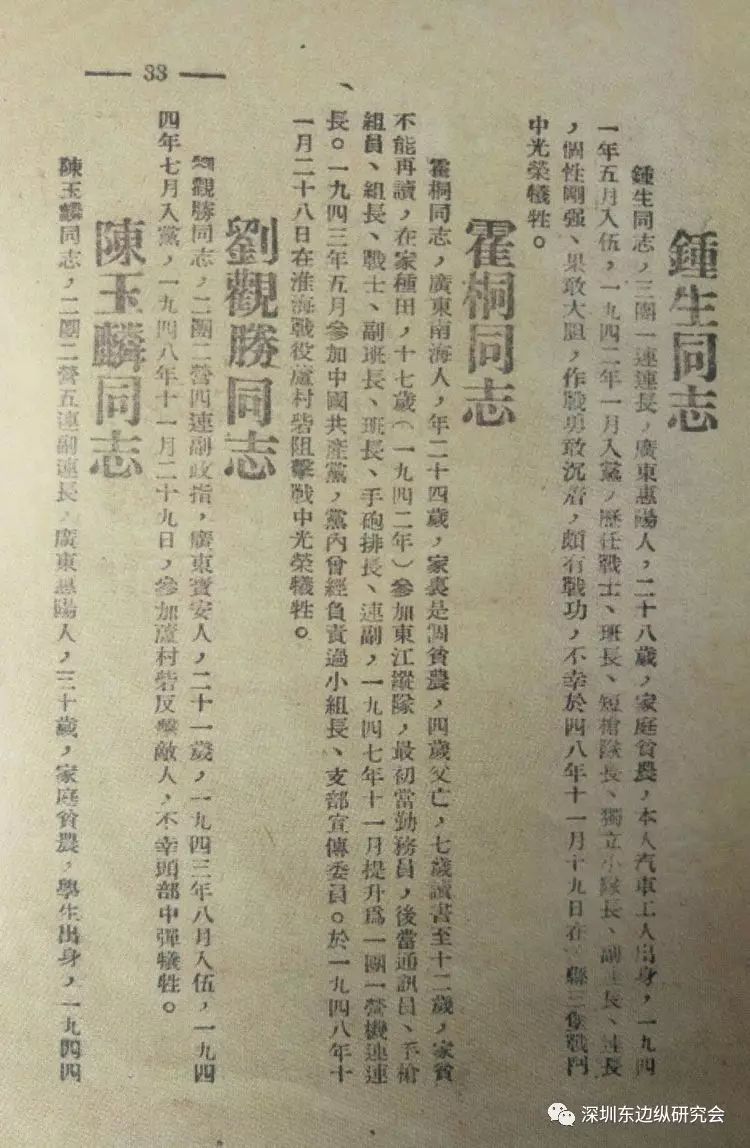 — 33 —
鍾生同志
鍾生同志，三團一連連長，廣東惠陽人，二十八歲，家庭貧農，本人汽車工人出身，一九四
一年五月入伍，一九四二年一月入黨，歷任戰士、班長、短槍隊長、獨立小隊長、副連長、連長
，個性剛强、果敢大胆，作戰勇敢沉着，頗有戰功，不幸於四八年十一月十九日在縣三堡戰鬥
中光榮犧牲。
霍桐同志
霍桐同志，廣東南海人，年二十四歲，家裏是個貧農，四歲父亡，七歲讀書至十二歲，家貧
不能再讀，在家種田，十七歲（一九四二年）參加東江縱隊，最初當勤務員，後當通訊員、手槍
組員、組長、戰士、副班長、班長、手砲排長、連副，一九四七年十一月提升爲一團一營機連連
長。一九四三年五月參加中國共產黨，黨內曾經負責過小組長、支部宣傳委員。於一九四八年十
一月二十八日在淮海戰役蘆村砦阻擊戰中光榮犧牲。
劉觀勝同志
劉觀勝同志，二團二營四連副政指，廣東寶安人，二十一歲，一九四三年八月入伍，一九四
四年七月入黨，一九四八年十一月二十九日，參加蘆村砦反擊敵人，不幸頭部中彈犧牲。
陳玉麟同志
陳玉麟同志，二團二營五連副連長，廣東惠陽人，三十歲，家庭貧農，學生出身，一九四四
深圳东边纵研究会